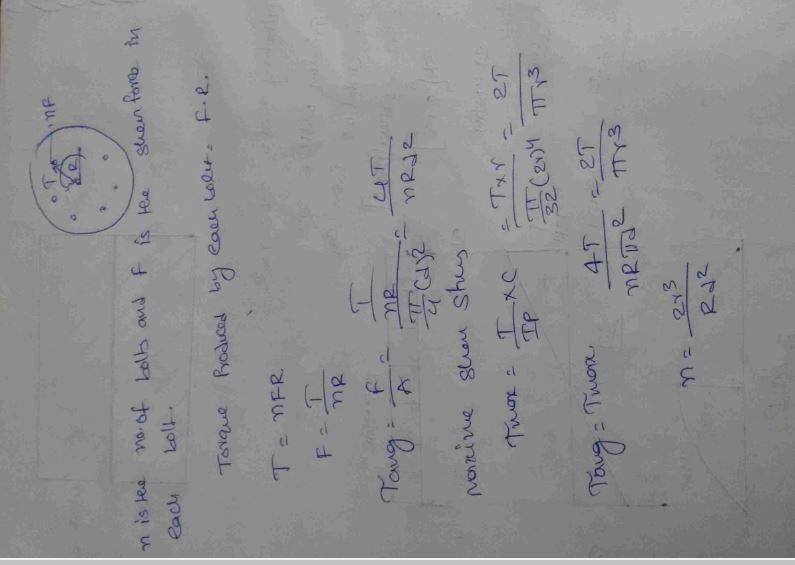 T nF
R
n is the no. of bolts and F is the shear force in
each bolt.
Torque Produced by each bolt = F.R.
T = nFR
F = T/nR
Tavg = F/A = (T/nR)/(π/4 (d)²) = 4T/nRd²
maxime shear stress
Tmax = T/IP × C = T×r/(π/32 (2r)⁴) = 2T/πr³
Tavg = Tmax 4T/nRπd² = 2T/πr³
n = 2r³/Rd²